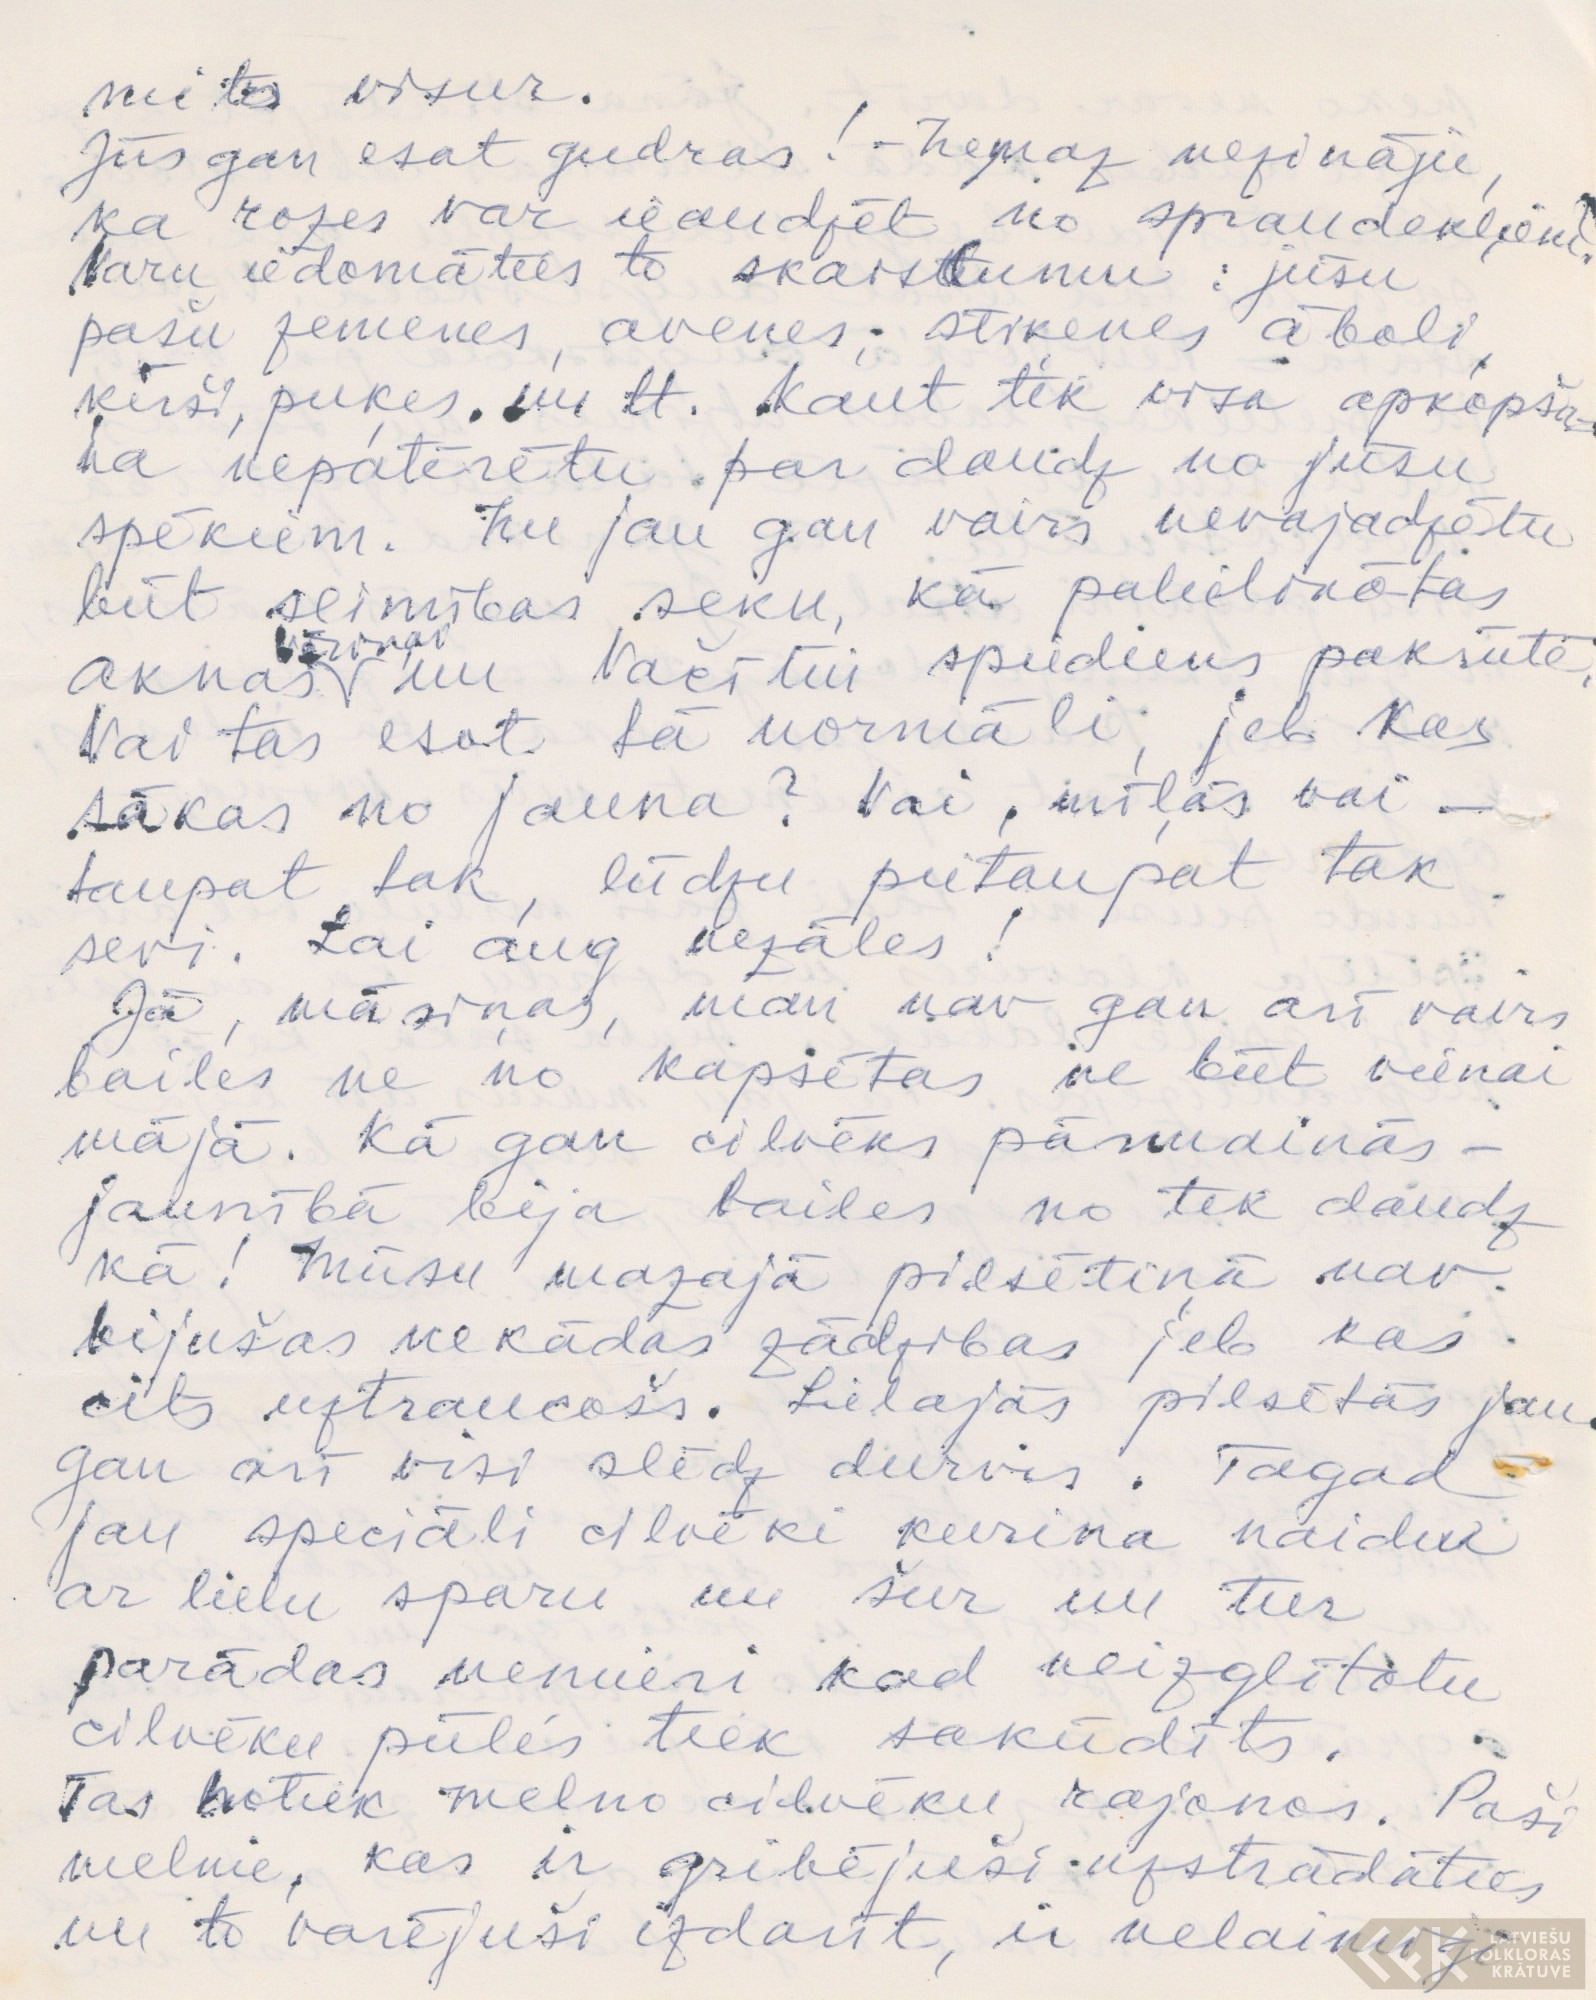 mīt visur.
Jūs gan esat gudras! - Nemaz nezināju,
ka rozes var ieaudzēt no spraudekļiem!
Varu iedomāties to skaistumu: jūsu
pašu zemenes, avenes, stiķenes āboli,
ķirši, puķes. un tt. Kaut tik visa apkopša-
na nepatērētu par daudz no jūsu
spēkiem. Nu jau gan vairs nevajadzētu
būt slimības seku, kā palielinātas
aknas Vērinai un Vačītii spiediens pakrūtē.
Vai tas esot tā normāli, jeb kas
sākas no jauna? Vai, mīļās vai -
taupat tak, lūdzu pietaupat tak
sevi. Lai aug nezāles!
Jā, māsiņas, man nav gan arī vairs
bailes ne no kapsētas ne būt vienai
mājā. Kā gan cilvēks pārmainās -
jaunībā bija bailes no tik daudz
kā! Mūsu mazajā pilsētiņā nav
bijušas nekādas zādzības jeb kas
cits uztraucošs. Lielajās pilsētās jau
gan arī visi slēdz durvis. Tagad
jau speciāli cilvēki kurina naidu
ar lielu sparu un šur un tur
parādas nemieri kad neizglītotu
cilvēku pūlis tiek sakūdīts.
Tas notiek melno cilvēku rajonos. Paši
melnie, kas ir gribējuši uzstrādāties
un to varējuši izdarīt, ir nelaimīgi
LATVIEŠU
FOLKLORAS
KRĀTUVE